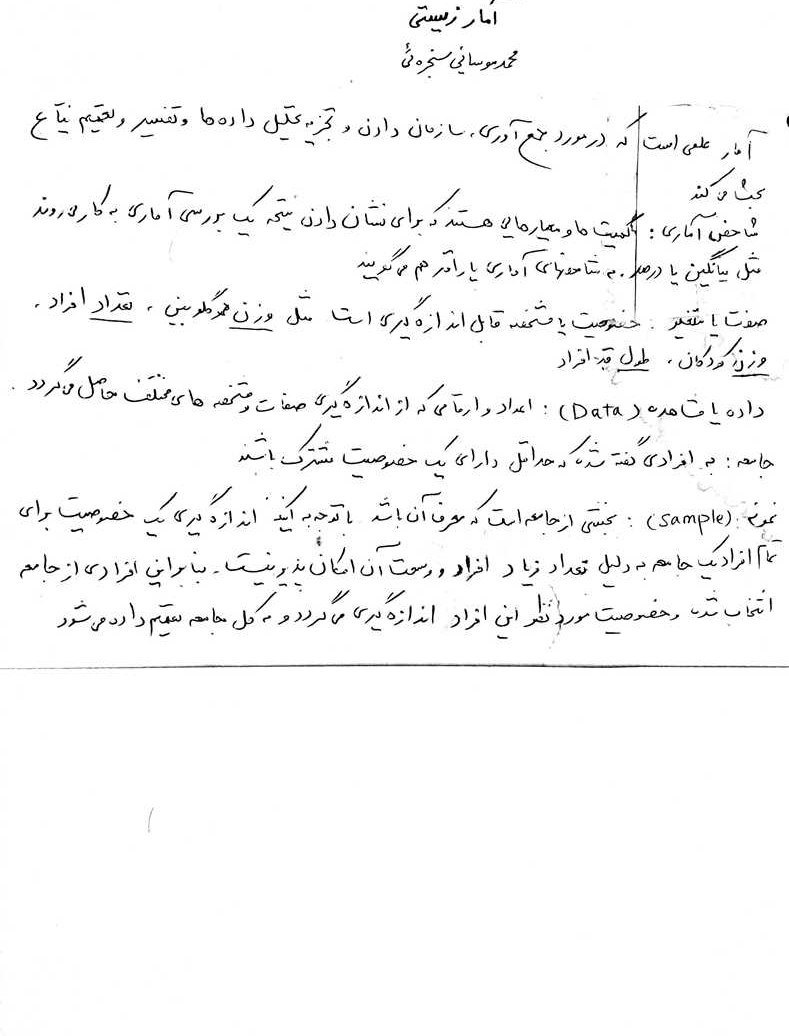 آمار زیستی
محمد موسائی سنجره‌ئی
آمار علمی است که در مورد جمع آوری، سازمان دادن و تجزیه تحلیل داده ها و تفسیر و تعمیم نتایج
بحث می کند
شاخص آماری : کمیت ها و معیارهایی هستند که برای نشان دادن نتیجه یک بررسی آماری به کار می روند
مثل میانگین یا درصد . به شاخصهای آماری پارامتر هم می گویند
صفت یا متغیر : خصوصیت یا مشخصه قابل اندازه گیری است مثل وزن هموگلوبین ، تعداد افراد ،
وزن کودکان ، طول قد افراد
داده یا مشاهده (Data) : اعداد و ارقامی که از اندازه گیری صفات و مشخصه های مختلف حاصل می گردد .
جامعه : به افرادی گفته شده که حداقل دارای یک خصوصیت مشترک باشند
نمونه (Sample) : بخشی از جامعه است که معرف آن باشد با توجه به اینکه اندازه گیری یک خصوصیت برای
تمام افراد یک جامعه به دلیل تعداد زیاد افراد و وسعت آن امکان پذیر نیست . بنابراین افرادی از جامعه
انتخاب شده و خصوصیت مورد نظر این افراد اندازه گیری می گردد و به کل جامعه تعمیم داده می شود